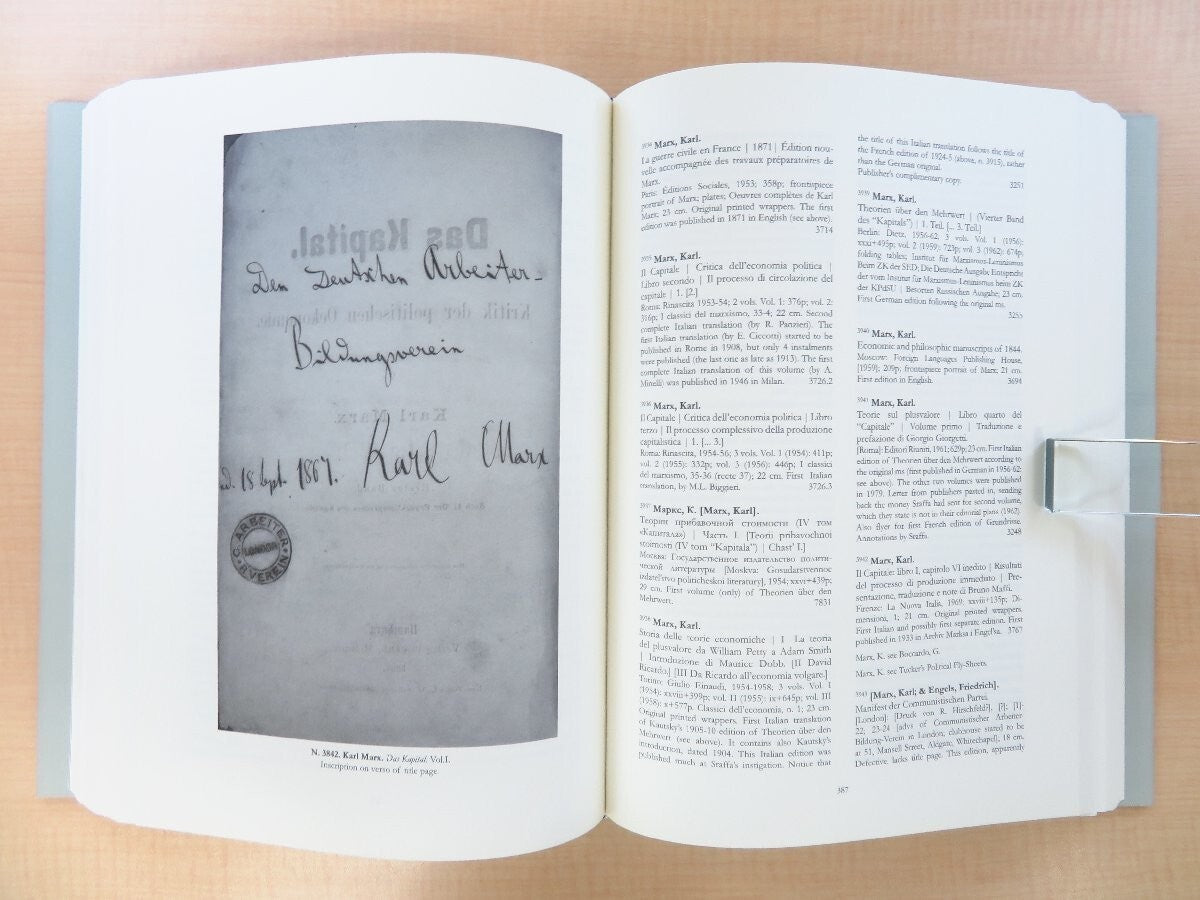 Das Kapital.
Dem Deutschen Arbeiter-
Kritik der politischen Oekonomie.
Bildungsverein
Karl Marx.
18 Sept. 1867. Karl Marx
C. ARBEITER
LONDON
B. VEREIN
Hamburg
N. 3842. Karl Marx. Das Kapital. Vol.I.
Inscription on verso of title page
3934 Marx, Karl.
La guerre civile en France | 1871 | Édition nou-
velle accompagnée des travaux préparatoires de
Marx.
Paris: Éditions Sociales, 1953; 358p; frontispiece
portrait of Marx; plates; Oeuvres complètes de Karl
Marx; 23 cm. Original printed wrappers. The first
edition was published in 1871 in English (see above).
3714
3935 Marx, Karl.
Il Capitale | Critica dell'economia politica |
Libro secondo | Il processo di circolazione del
capitale | 1. [2.]
Roma: Rinascita 1953-54; 2 vols. Vol. 1: 376p; vol. 2:
316p; I classici del marxismo, 33-4; 22 cm. Second
complete Italian translation (by R. Panzieri). The
first Italian translation (by E. Ciccotti) started to be
published in Rome in 1908, but only 4 instalments
were published (the last one as late as 1913). The first
complete Italian translation of this volume (by A.
Minelli) was published in 1946 in Milan. 3726.2
3936 Marx, Karl.
Il Capitale | Critica dell'economia politica | Libro
terzo | Il processo complessivo della produzione
capitalistica | 1. [... 3.]
Roma: Rinascita, 1954-56; 3 vols. Vol. 1 (1954): 411p;
vol. 2 (1955): 332p; vol. 3 (1956): 446p; I classici
del marxismo, 35-36 (recte 37); 22 cm. First Italian
translation, by M.L. Biggieri. 3726.3
3937 Маркс, К. [Marx, Karl].
Теории прибавочной стоимости (IV том
«Капитала») | Часть I. [Teorii pribavochnoi
stoimosti (IV tom "Kapitala") | Chast' I.]
Москва: Государственное издательство полити-
ческой литературы [Moskva: Gosudarstvennoe
izdatel'stvo politicheskoi literatury], 1954; xxvi+439p;
29 cm. First volume (only) of Theorien über den
Mehrwert. 7831
3938 Marx, Karl.
Storia delle teorie economiche | I La teoria
del plusvalore da William Petty a Adam Smith
| Introduzione di Maurice Dobb. [II David
Ricardo.] [III Da Ricardo all'economia volgare.]
Torino: Giulio Einaudi, 1954-1958; 3 vols. Vol. I
(1954): xxviii+399p; vol. II (1955): ix+645p; vol. III
(1958): x+577p. Classici dell'economia, n. 1; 23 cm.
Original printed wrappers. First Italian translation
of Kautsky's 1905-10 edition of Theorien über den
Mehrwert (see above). It contains also Kautsky's
introduction, dated 1904. This Italian edition was
published much at Sraffa's instigation. Notice that
the title of this Italian translation follows the title of
the French edition of 1924-5 (above, n. 3915), rather
than the German original.
Publisher's complimentary copy. 3251
3939 Marx, Karl.
Theorien über den Mehrwert | (Vierter Band
des "Kapitals") | 1. Teil. [... 3. Teil.]
Berlin: Dietz, 1956-62, 3 vols. Vol. 1 (1956):
xxxi+495p; vol. 2 (1959): 723p; vol. 3 (1962): 674p,
folding tables; Institut für Marxismus-Leninismus
Beim ZK der SED; Die Deutsche Ausgabe Entspricht
der vom Institut für Marxismus-Leninismus beim ZK
der KPdSU | Besorten Russischen Ausgabe; 23 cm.
First German edition following the original ms.
3255
3940 Marx, Karl.
Economic and philosophic manuscripts of 1844.
Moscow: Foreign Languages Publishing House,
[1959]; 209p, frontispiece portrait of Marx; 21 cm.
First edition in English. 3694
3941 Marx, Karl.
Teorie sul plusvalore | Libro quarto del
"Capitale" | Volume primo | Traduzione e
prefazione di Giorgio Giorgetti.
[Roma]: Editori Riuniti, 1961; 629p; 23 cm. First Italian
edition of Theorien über den Mehrwert according to
the original ms (first published in German in 1956-62:
see above). The other two volumes were published
in 1979. Letter from publishers pasted in, sending
back the money Sraffa had sent for second volume,
which they state is not in their editorial plans (1962).
Also flyer for first French edition of Grundrisse.
Annotations by Sraffa. 3248
3942 Marx, Karl.
Il Capitale: libro I, capitolo VI inedito | Risultati
del processo di produzione immediato | Pre-
sentazione, traduzione e note di Bruno Maffi.
Firenze: La Nuova Italia, 1969; xxviii+135p; Di-
mensioni, 1; 21 cm. Original printed wrappers.
First Italian and possibly first separate edition. First
published in 1933 in Archiv Marksa i Engel'sa. 3767
Marx, K. see Boccardo, G.
Marx, K. see Tucker's Political Fly-Sheets.
3943 [Marx, Karl; & Engels, Friedrich].
Manifest der Communistischen Partei.
[London]: [Druck von R. Hirschfeld?], [?]; [1]-
22, 23-24 [advs of Communistischer Arbeiter
Bildung-Verein in London, clubhouse stated to be
at 51, Mansell Street, Aldgate, Whitechapel], 18 cm.
Defective, lacks title page. This edition, apparently
387